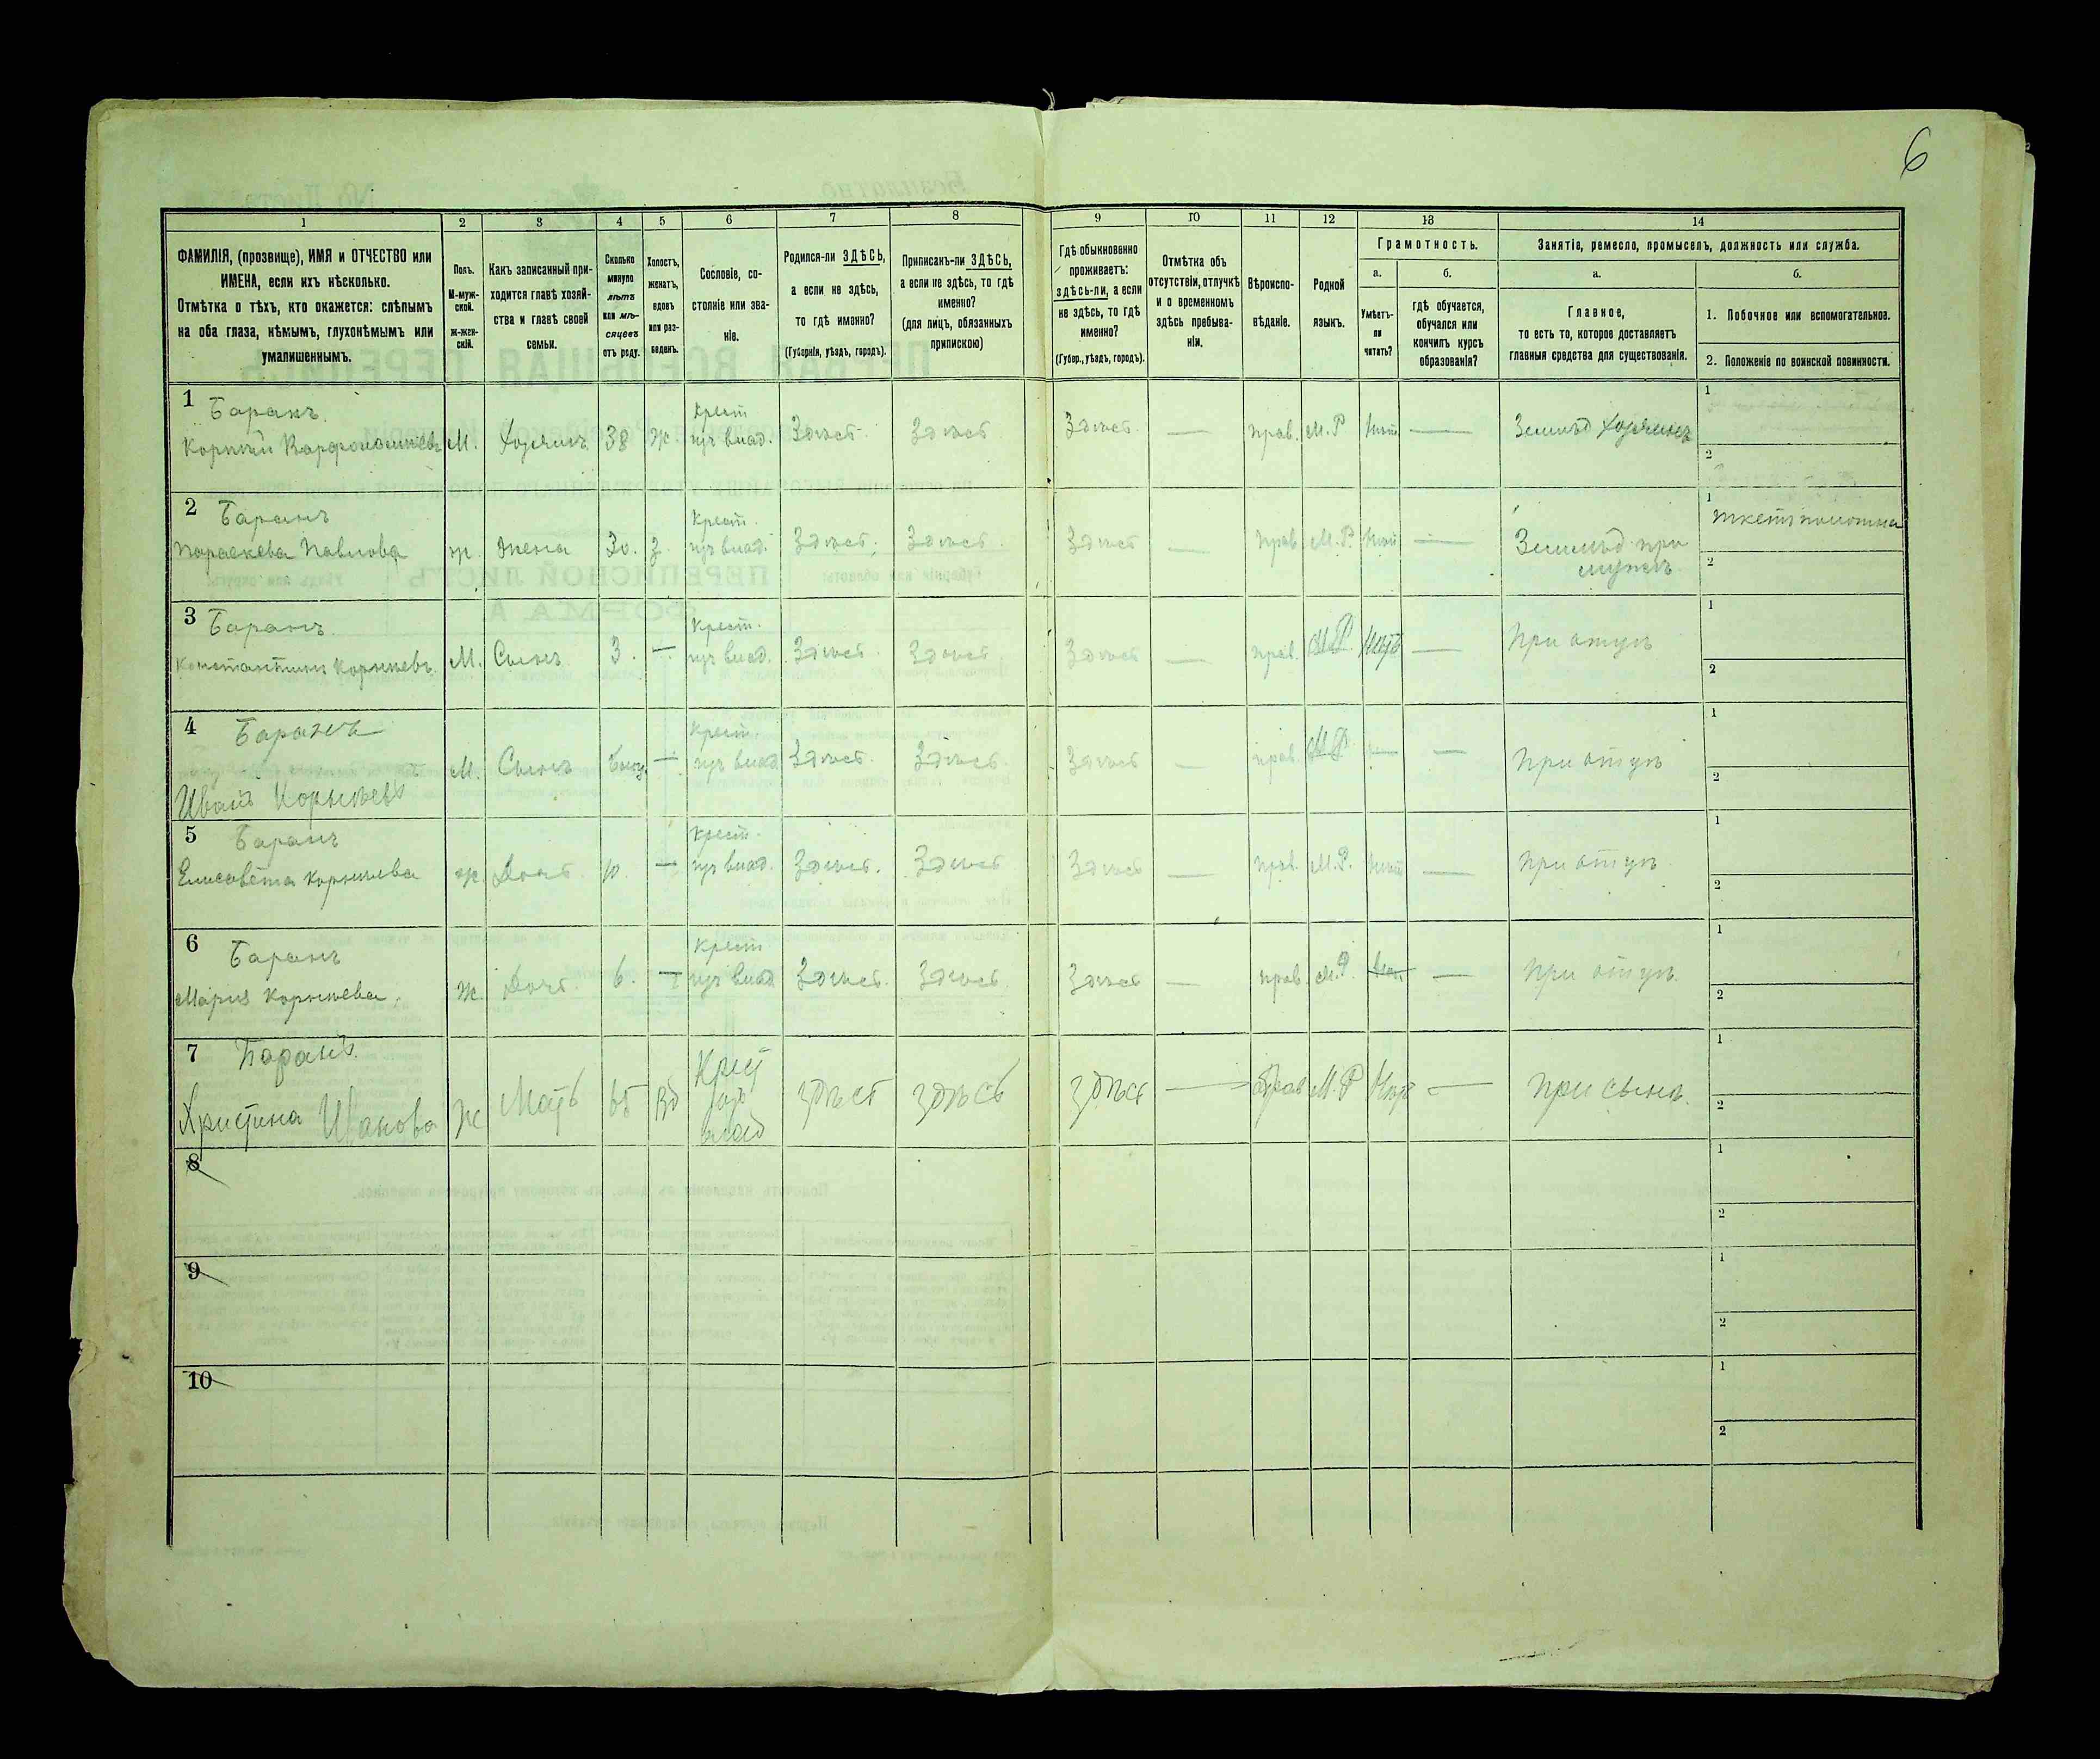 6
1 2 3 4 5 6 7 8 9 10 11 12 13 14
ФАМИЛІЯ, (прозвище), ИМЯ и ОТЧЕСТВО или
ИМЕНА, если ихъ нѣсколько.
Отмѣтка о тѣхъ, кто окажется: слѣпымъ
на оба глаза, нѣмымъ, глухонѣмымъ или
умалишеннымъ.
Полъ.
М-муж-
ской.
ж-жен-
скій.
Какъ записанный при-
ходится главѣ хозяй-
ства и главѣ своей
семьи.
Сколько
минуло
лѣтъ
или мѣ-
сяцевъ
отъ роду.
Холостъ,
женатъ,
вдовъ
или раз-
веденъ.
Сословіе, со-
стояніе или зва-
ніе.
Родился-ли ЗДѢСЬ,
а если не здѣсь,
то гдѣ именно?
(Губернія, уѣздъ, городъ).
Приписанъ-ли ЗДѢСЬ,
а если не здѣсь, то гдѣ
именно?
(для лицъ, обязанныхъ
припискою)
Гдѣ обыкновенно
проживаетъ:
здѣсь-ли, а если
не здѣсь, то гдѣ
именно?
(Губер., уѣздъ, городъ).
Отмѣтка объ
отсутствіи, отлучкѣ
и о временномъ
здѣсь пребыва-
ніи.
Вѣроиспо-
вѣданіе.
Родной
языкъ.
Грамотность.
а.
Умѣетъ-
ли
читать?
б.
гдѣ обучается,
обучался или
кончилъ курсъ
образованія?
Занятіе, ремесло, промыселъ, должность или служба.
а.
Главное,
то есть то, которое доставляетъ
главныя средства для существованія.
б.
1. Побочное или вспомогательное.
2. Положеніе по воинской повинности.
1 Баранъ
Корнѣй Варфоломѣевъ М. Хозяинъ 38 Ж Крест изъ влад. Здѣсь Здѣсь Здѣсь — прав. М.Р нѣт — Землѣд Хозяинъ 1 2
2 Баранъ
Параскева Павлова ж. жена 30. З. Крест. изъ влад. Здѣсь Здѣсь Здѣсь — прав М.Р. нѣт — Землѣд при мужѣ 1 ткетъ полотна 2
3 Баранъ
Константинъ Корнѣевъ М. Сынъ 3. — Крест. изъ влад. Здѣсь Здѣсь Здѣсь — прав. М.Р. Нѣтъ — При отцѣ 1 2
4 Баранъ
Иванъ Корнѣевъ М. Сынъ — Крест изъ влад Здѣсь Здѣсь Здѣсь — прав. М.Р. — — При отцѣ 1 2
5 Баранъ
Елисавета Корнѣева ж. Дочь — Крест. изъ влад. Здѣсь Здѣсь Здѣсь — прав. М.Р. Нѣт — При отцѣ 1 2
6 Баранъ
Марія Корнѣева. Ж. Дочь 6. — Крест изъ влад Здѣсь Здѣсь Здѣсь — прав. М.Р. — При отцѣ 1 2
7 Баранъ
Христина Иванова Ж Мать 65 Вд Крест изъ влад здѣсь здѣсь здѣсь — Прав М.Р Нѣт — при сынѣ. 1 2
8 1 2
9 1 2
10 1 2